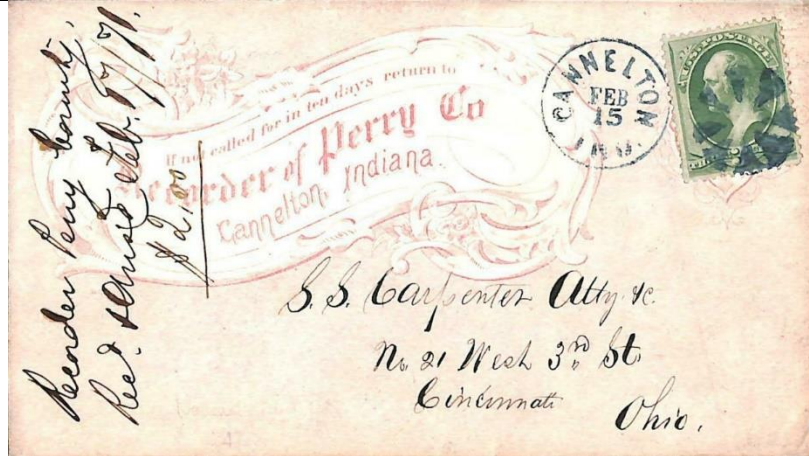 Recorder Perry County,
Rec'd & Ans'd Feb. 17/71.
$2.00
If not called for in ten days return to
Recorder of Perry Co
Cannelton, Indiana.
CANNELTON
FEB
15
IND.
U.S. POSTAGE
S. S. Carpenter Atty &c.
No 21 West 3rd St
Cincinnati
Ohio.